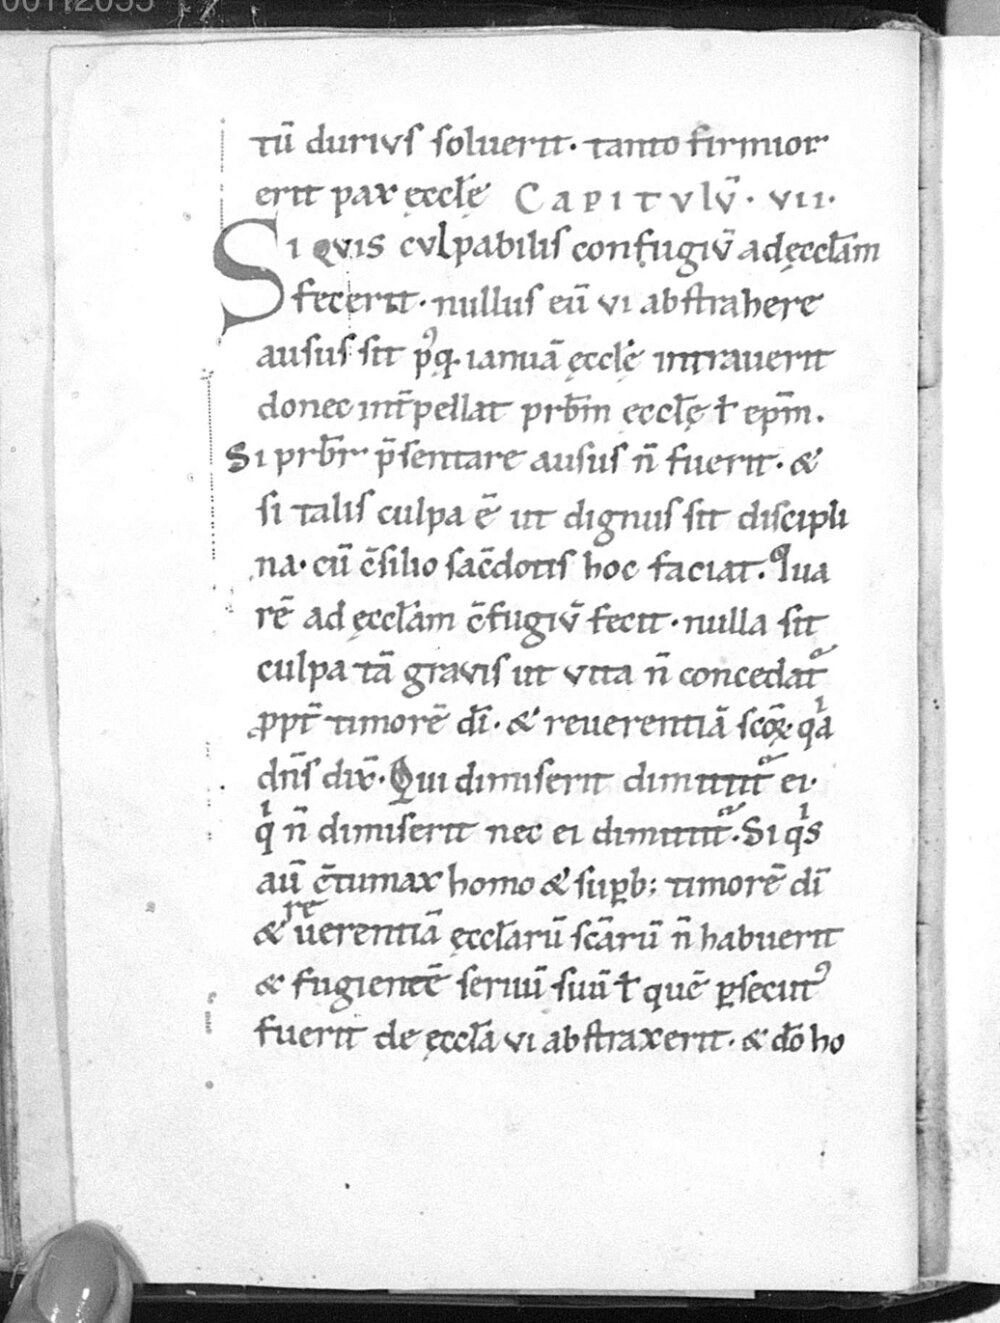 tū durius soluerit · tanto firmior
erit pax ęccłę Capitulū · vii ·
Si quis culpabilis confugiū ad ęccłam
fecerit · nullus eū vi abstrahere
ausus sit pꝰq · ianuā ęccłę intrauerit
donec int̄pellat prb̄m ęccłę ł ep̄m .
Si prb̄r p̄sentare ausus n̄ fuerit · &
si talis culpa ē ut dignus sit discipli
na · cū c̄silio sac̄dotis hoc faciat . Qua
rē ad ęccłam c̄fugiū fecit · nulla sit
culpa tā gravis ut vita n̄ concedat̄
ꝓpt̄ timorē dī · & reuerentiā sc̄oꝝ · qa
dn̄s dix̄ · Qui dimiserit dimittit̄ ei ·
q n̄ dimiserit nec ei dimittit̄ . Si qs
aū c̄tumax homo & suꝑb; timorē dī
& reuerentiā ęccłarū sc̄arū n̄ habuerit
& fugientē seruū suū ł quē ꝑsecutꝰ
fuerit de ęccła vi abstraxerit · & dō ho